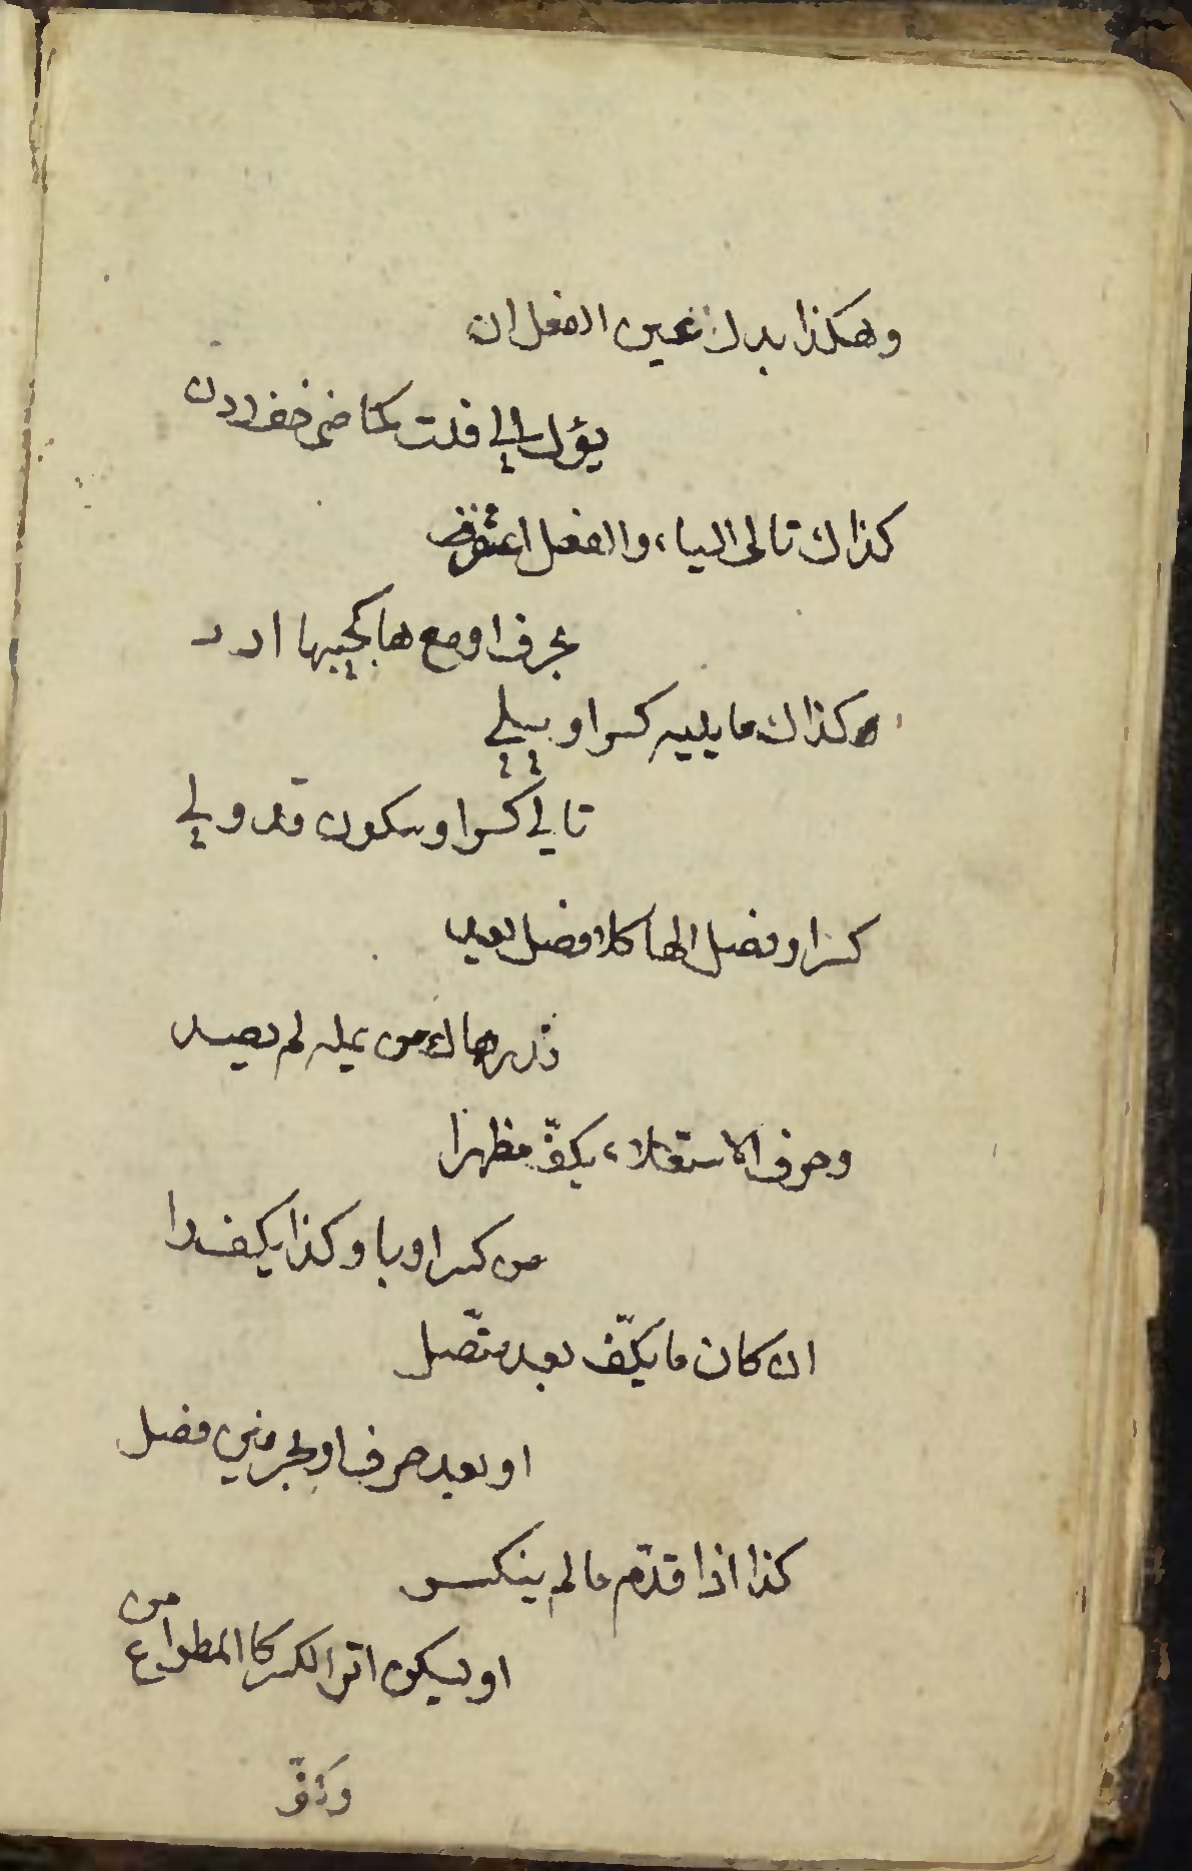 وهكذا بدل عين الفعل ان
يؤل الي فلت كماضي خف ودن
كذاك تالى الياء والفعل اغتفر
بحرف او مع ها كجيبها ادر
كذاك ما يليه كسر او يلي
تالي كسر او سكون قد ولي
كسرا وفصل الها كلا فصل يعد
فدرهماك من يمله لم يصد
وحرف الاستعلاء يكفّ مظهرا
من كسر او يا وكذا يكف را
ان كان ما يكفّ بعد متّصل
او بعد حرف او بحرفين فصل
كذا اذا قدّم ما لم ينكسر
او يسكن اثر الكسر كالمطواع من
وكفّ